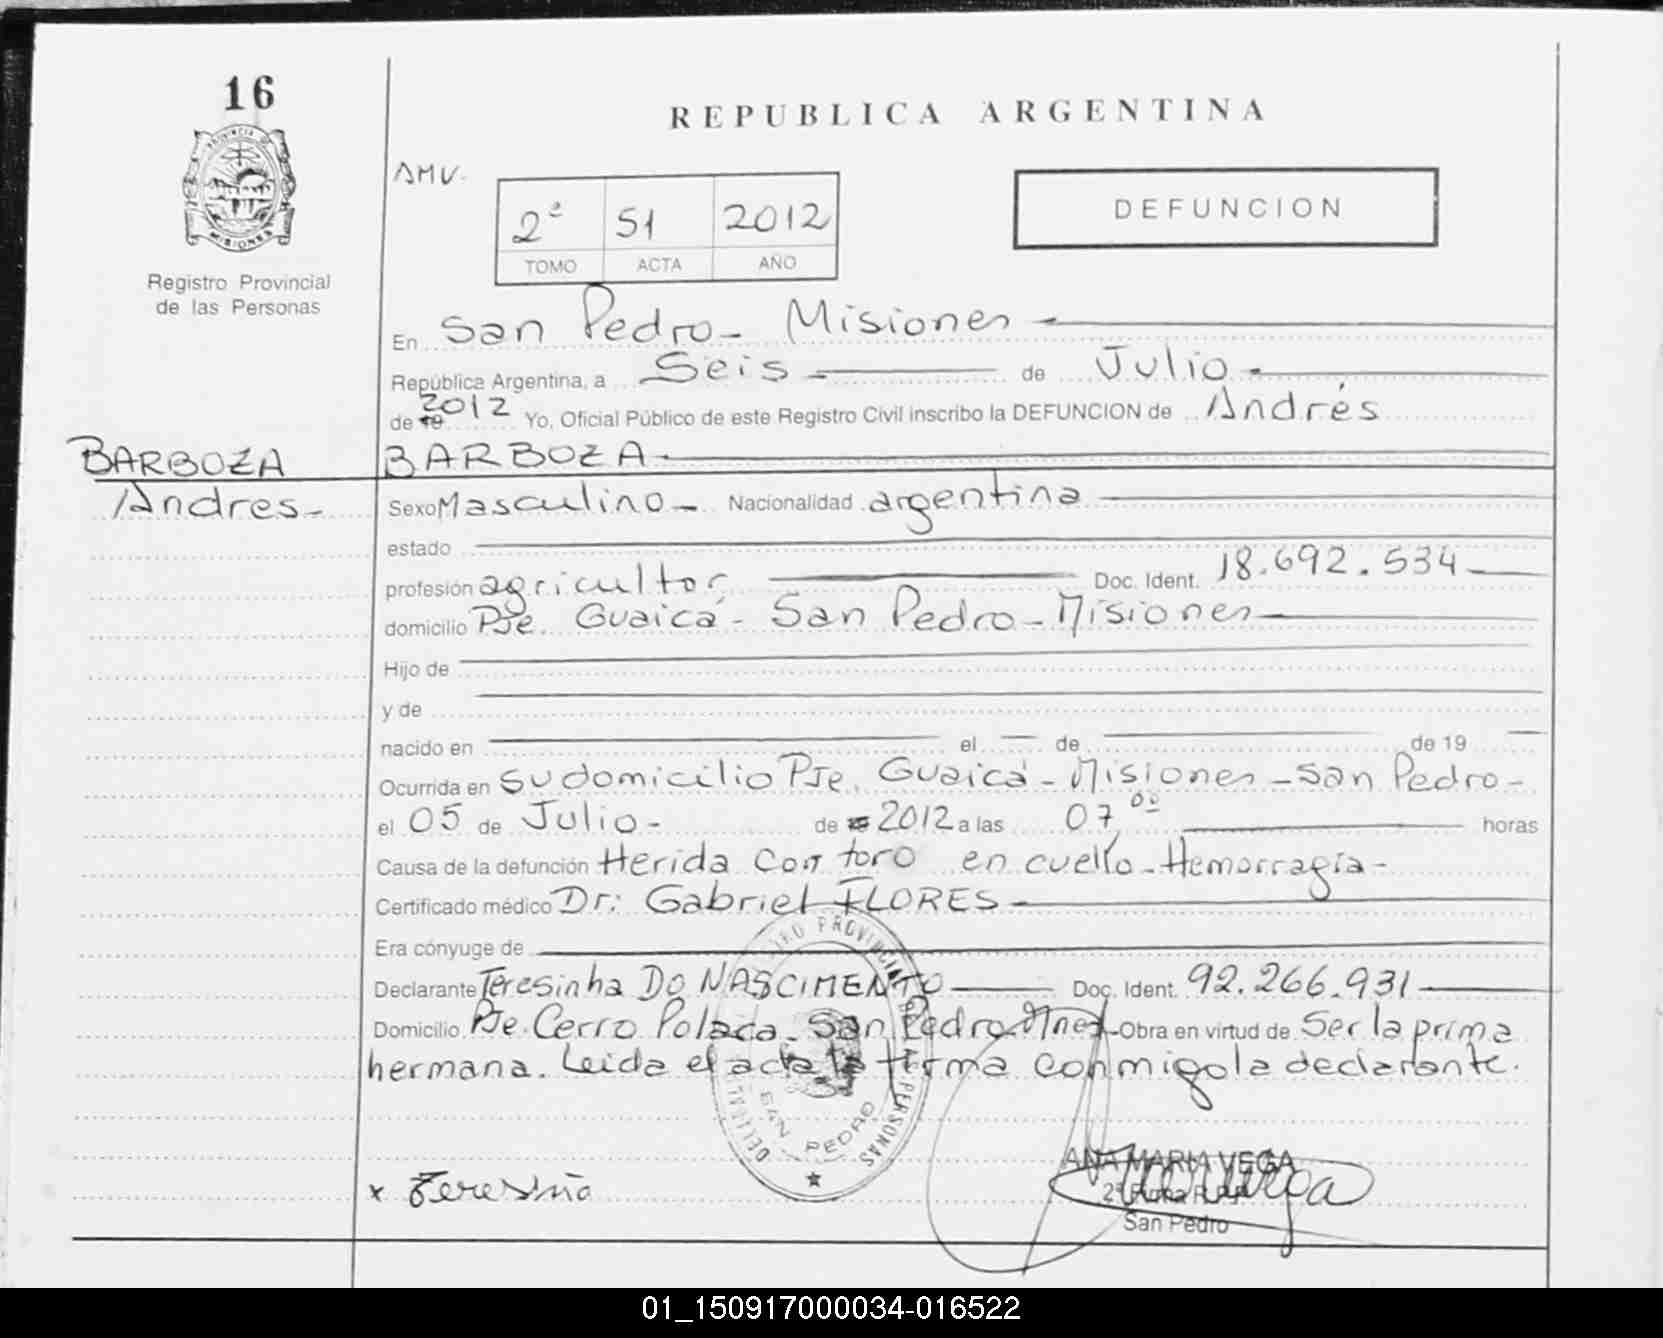 16
REPUBLICA ARGENTINA
PROVINCIA DE
MISIONES
Registro Provincial
de las Personas
AMV.
2º 51 2012
TOMO ACTA AÑO
DEFUNCION
En San Pedro - Misiones
República Argentina, a Seis de Julio
de 19 2012 Yo, Oficial Público de este Registro Civil inscribo la DEFUNCION de Andrés
BARBOZA BARBOZA
Andres- Sexo Masculino - Nacionalidad argentina
estado
profesión agricultor Doc. Ident. 18.692.534
domicilio Pje. Guaicá - San Pedro - Misiones
Hijo de
y de
nacido en el de de 19
Ocurrida en su domicilio Pje. Guaicá - Misiones - San Pedro -
el 05 de Julio - de 2012 a las 07 00 horas
Causa de la defunción Herida con toro en cuello - Hemorragia -
Certificado médico Dr: Gabriel FLORES
Era cónyuge de
Declarante Teresinha DO NASCIMENTO Doc. Ident. 92.266.931
Domicilio Pje. Cerro Polaca - San Pedro Mnes - Obra en virtud de Ser la prima
hermana. Leida el acta la firma conmigo la declarante.
SAN PEDRO
ANA MARIA VEGA
x
San Pedro
01_150917000034-016522